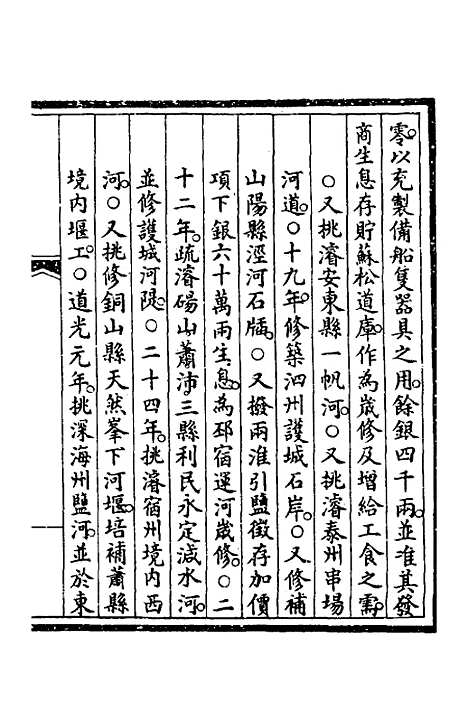 零。以充製備船隻器具之用。餘銀四千兩。並准其發
商生息存貯蘇松道庫。作為歲修及增給工食之需。
○又挑濬安東縣一帆河。○又挑濬泰州串場
河道。○十九年。修築泗州護城石岸。○又修補
山陽縣涇河石牐。○又撥兩淮引鹽徵存加價
項下銀六十萬兩生息。為邳宿運河歲修。○二
十二年。疏濬碭山蕭沛三縣利民永定減水河。
並修護城河隄。○二十四年。挑濬宿州境內西
河。○又挑修銅山縣天然峯下河堰。培補蕭縣
境內堰工。○道光元年。挑深海州鹽河。並於東